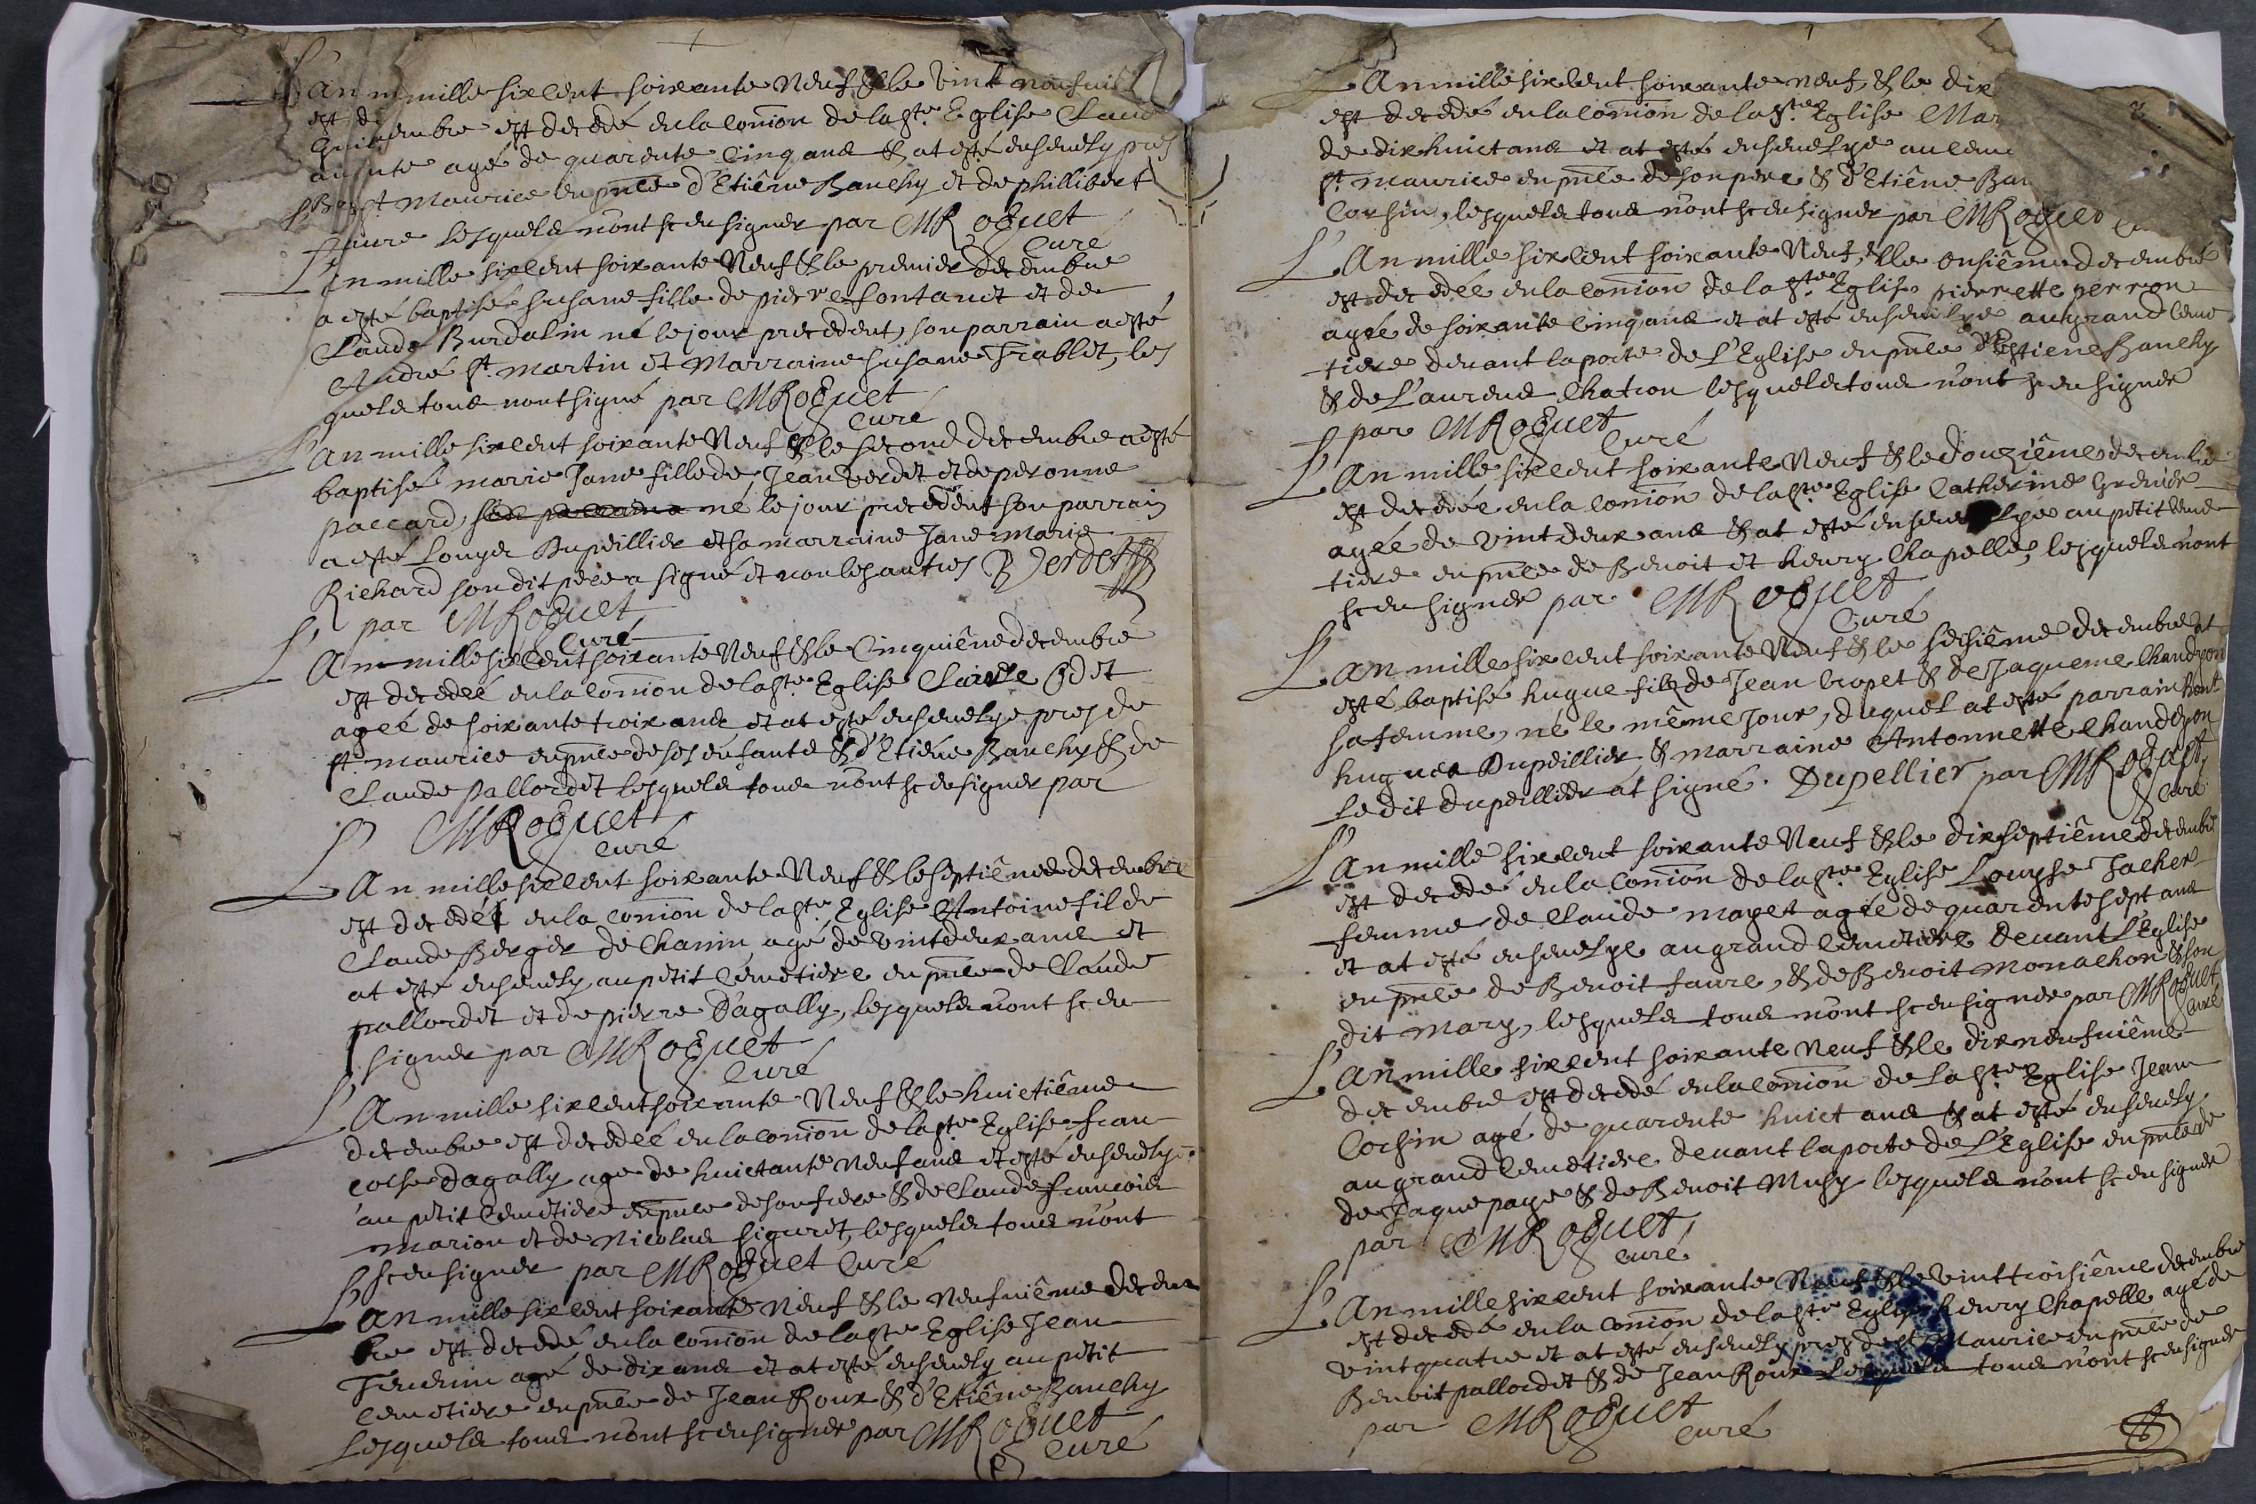 L'an mille sixcent soixante Neuf & le vint
est decedé en la conion de la ste Eglise
agé de quarente cinq ans & at esté ensevely pres
st Maurice en pnce d'Etiêne Banchy et de phillibert
faure lesquels n'ont sceu signer par MRoguet
Curé
L'an mille sixcent soixante Neuf & le premier decembre
a esté baptisée susane fille de pierre fontanet et de
Claude Burdalin né le jour precedent, son parrain a esté
André st. martin et Marraine susane Trablet, les
quels tous n'ont signé par MRoguet
Curé
L'an mille sixcent soixante Neuf & le second decembre a esté
baptisé marie Jane fille de Jean verdet et de peronne
paccard, né le jour precedent son parrain
a esté Louys Dupeillier et sa marraine Jane marie
Richard son dit pere a signé et non les autres B Verdet
par MRoguet
Curé
L'An mille sixcent soixante Neuf & le Cinquiême decembre
est decedée en la conion de la ste Eglise Claude Odet
agée de soixante trois ans et at esté ensevelye pres de
st. maurice en pnce de ses enfants & d'Etiêne Banchy & de
Claude pallordet lesquels tous n'ont sceu signer par
MRoguet
curé
L'An mille sixcent soixante Neuf & le septiême decembre
est decedé en la conion de la ste Eglise Antoine fil de
Claude Berger de Chanin agé de vint deux ans et
at esté ensevely au petit Cemetiere en pnce de Claude
pallordet et de pierre Dagally, lesquels n'ont sceu
signer par MRoguet
Curé
L'An mille sixcent soixante Neuf & le huictiême
decembre est decedée en la conion de la ste Eglise fran
coise Dagally age de huictante Neuf ans et esté ensevelye
au petit Cemetiere en pnce de son frere & de Claude francois
marion et de Nicolas siguret, lesquels tous n'ont
sceu signer par MRoguet Curé
L'an mille sixcent soixante Neuf & le Neufviême decem
bre est decedé en la conion de la ste Eglise Jean
agé de dix ans et at esté ensevely au petit
Cemetiere en pnce de Jean Roux & d'Etiêne Banchy
lesquels tous n'ont sceu signer par MRoguet
Curé
L'An mille sixcent soixante neuf, & le dix
est decedé en la conion de la ste Eglise Mar
de dix huict ans et at esté ensevelye au ceme
st. maurice en pnce de son pere & d'Etiêne Ban
Corsin, lesquels tous n'ont sceu signer par MRoguet
L'An mille sixcent soixante Neuf, & le onsiême decembre
est decedée en la conion de la ste Eglise pierrette perron
agée de soixante cinq ans et at esté ensevelye au grand Ceme
tiere devant la porte de l'Eglise en pnce d'Estiene Banchy
& de Laurens Chatron lesquels tous n'ont sceu signer
par MRoguet
Curé
L'An mille sixcent soixante Neuf & le douziême decembre
est decedée en la conion de la ste Eglise Catherine Grenier
agée de vint deux ans & at esté ensevelye au petit Ceme
tiere en pnce de Benoit et henry Chapelle, lesquels n'ont
sceu signer par MRoguet
Curé
L'an mille sixcent soixante Neuf & le seisiême decembre at
esté baptisé hugue filz de Jean tropet & de Jaqueme Chandyon
sa femme, né le même Jour, duquel at esté parrain
hugues Dupeillier & marraine Antonnette Chandyon
le dit dupeillier at signé. Dupellier par MRoguet
Curé
L'an mille sixcent soixante Neuf & le dix septiême decembre
est decedé en la conion de la ste Eglise Louyse Jacher
femme de Claude mayet agée de quarente sept ans
et at esté ensevelye au grand Cemetiere devant l'Eglise
en pnce de Benoit faure, & de Benoit monachon & son
dit mary, lesquels tous n'ont sceu signer par MRoguet
Curé
L'An mille sixcent soixante Neuf & le dix neufviême
decembre est decedé en la conion de la ste Eglise Jean
Corsin agé de quarente huict ans & at esté ensevely
au grand Cemetiere devant la porte de l'Eglise en pnce
de Jaque page & de Benoit Musy lesquels n'ont sceu signer
par MRoguet
curé
L'An mille sixcent soixante Neuf & le vint troisiême decembre
est decedé en la conion de la ste Eglise henry Chapelle agé de
vint quatre et at esté ensevely pres de st Maurice en pnce de
Benoit pallordet & de Jean Roux Lesquels tous n'ont sceu signer
par MRoguet
curé